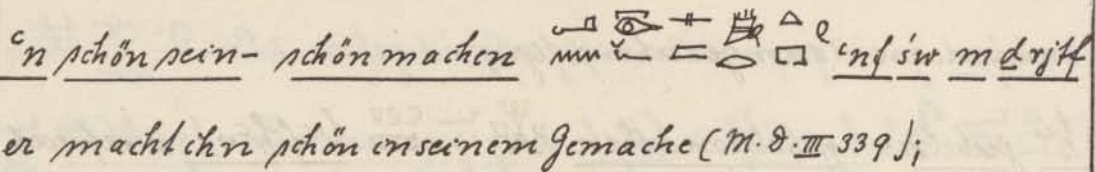 ꜥn schön sein - schön machen ꜥnf św m drjtf
er macht ihn schön in seinem Gemache (M. D. III 339);